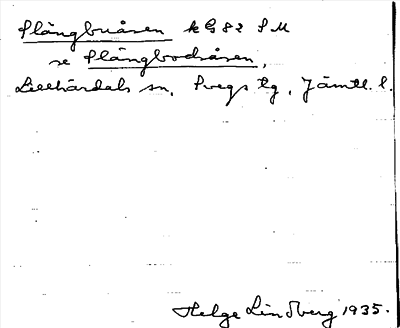 Slångbuåsen k G82 S M
se Slångbodåsen,
Lillhärdals sn, Svegs tg, Jämtl. l.
Helge Lindberg 1935.